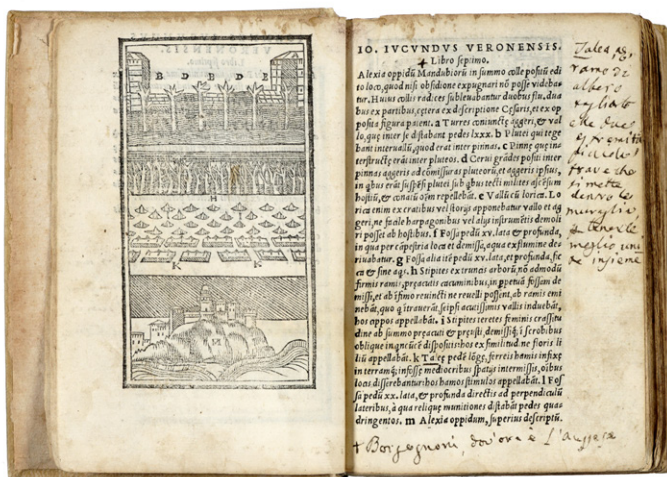 B D E D E
H
K K
N
IO. IVCVNDVS VERONENSIS.
Libro septimo.
Alexia oppidū Mandubiorū in summo colle positū edi
to loco, quod nisi obsidione expugnari nō posse videba-
tur. Huius collis radices subleuabantur duobus flu. dua
bus ex partibus, cetera ex descriptione Cesaris, et ex op
posita figura patent. a Turres coniunctę aggeri, & val
lo, quę inter se distabant pedes lxxx. b Plutei qui tege
bant interuallū, quod erat inter pinnas. c Pinnę quę in
terstructę erāt inter pluteos. d Cerui grādes positi inter
pinnas aggeris ad cōmissuras pluteorū, et aggeris ipsius,
in qbus erāt suspēsi plutei sub qbus tecti milites ascēsum
hostiū, & conatū oīm repellebāt. e Vallū cū lorica. Lo
rica enim ex cratibus vel storijs apponebatur vallo et ag
geri, ne facile harpagonibus vel alijs instrumētis demoli
ri posset ab hostibus. f Fossa pedū xv. lata, et profunda,
in qua per cāpestria loca et demissa, aqua ex flumine de
riuabatur. g Fossa alia itē pedū xv. lata, et profunda, sic
ca & sine aqs. h Stipites ex truncis arborū nō admodū
firmis ramis, preacutis cacuminibus, in ppetuā fossam de
missi, et ab īfimo reuincti ne reuelli possent, ab ramis emi
nebāt, quo q intrauerāt, seipsi acutissimis vallis induebāt,
hos cippos appellabāt. i Stipites teretes feminis crassitu
dine ab summo preacuti & preusti, demissiq; ī scrobibus
oblique in qncūcē dispositis: hos ex similitud. ne floris li
liū appellabāt. k Taleę pedē lōgę, ferreis hamis infixę
in terram q; infosse mediocribus spatijs intermissis, oībus
locis disserebantur: hos hamos stimulos appellabāt. l Fos
sa pedū xx. lata, & profunda directis ad perpendiculū
lateribus, à qua reliquę munitiones distabāt pedes qua-
dringentos. m Alexia oppidum, superius descriptū.
ramo di
albero
tagliato
che due
trave che
si mette
dentro le
muraglie
meglio uni
te insieme
+ Borgognoni, dov'ora è